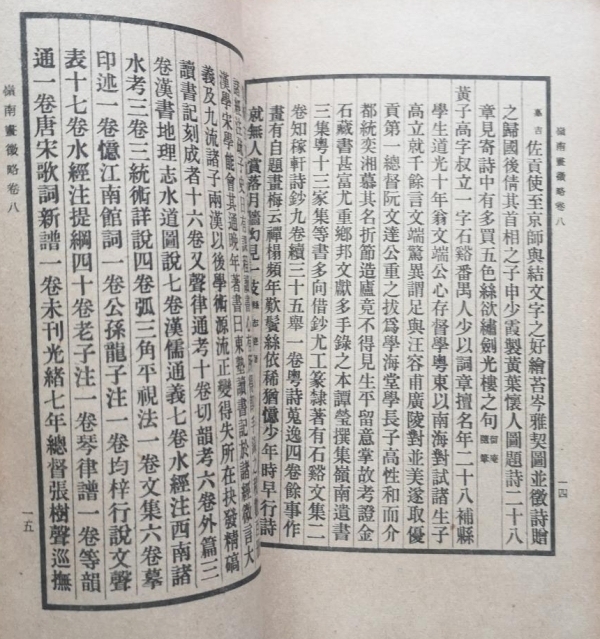 嶺南畫徵略卷八
一四
佐貢使至京師與結文字之好繪苔岑雅契圖並徵詩贈
之歸國後倩其首相之子申少霞製黃葉懷人圖題詩二十八
章見寄詩中有多買五色絲欲繡劍光樓之句
黃子高字叔立一字石谿番禺人少以詞章擅名年二十八補縣
學生道光十年翁文端公心存督學粵東以南海對試諸生子
高立就千餘言文端驚異謂足與汪容甫廣陵對並美遂取優
貢第一總督阮文達公重之拔爲學海堂學長子高性和而介
都統奕湘慕其名折節造廬竟不得見生平留意掌故考證金
石藏書甚富尤重鄉邦文獻多手錄之本譚瑩撰集嶺南遺書
三集粵十三家集等書多向借鈔尤工篆隸著有石谿文集二
卷知稼軒詩鈔九卷續三十五舉一卷粵詩蒐逸四卷餘事作
畫有自題畫梅云禪榻頻年歎鬢絲依稀猶憶少年時早行詩
就無人賞落月牆
見一枝
漢學宋學能會其通晚年著書曰東塾讀書記於諸經微言大
義及九流諸子兩漢以後學術源流正變得失所在抉發精碻
讀書記刻成者十六卷又聲律通考十卷切韻考六卷外篇三
卷漢書地理志水道圖說七卷漢儒通義七卷水經注西南諸
水考三卷三統術詳說四卷弧三角平視法一卷文集六卷摹
印述一卷憶江南館詞一卷公孫龍子注一卷均梓行說文聲
表十七卷水經注提綱四十卷老子注一卷琴律譜一卷等韻
通一卷唐宋歌詞新譜一卷未刊光緒七年總督張樹聲巡撫
嶺南畫徵略卷八
一五